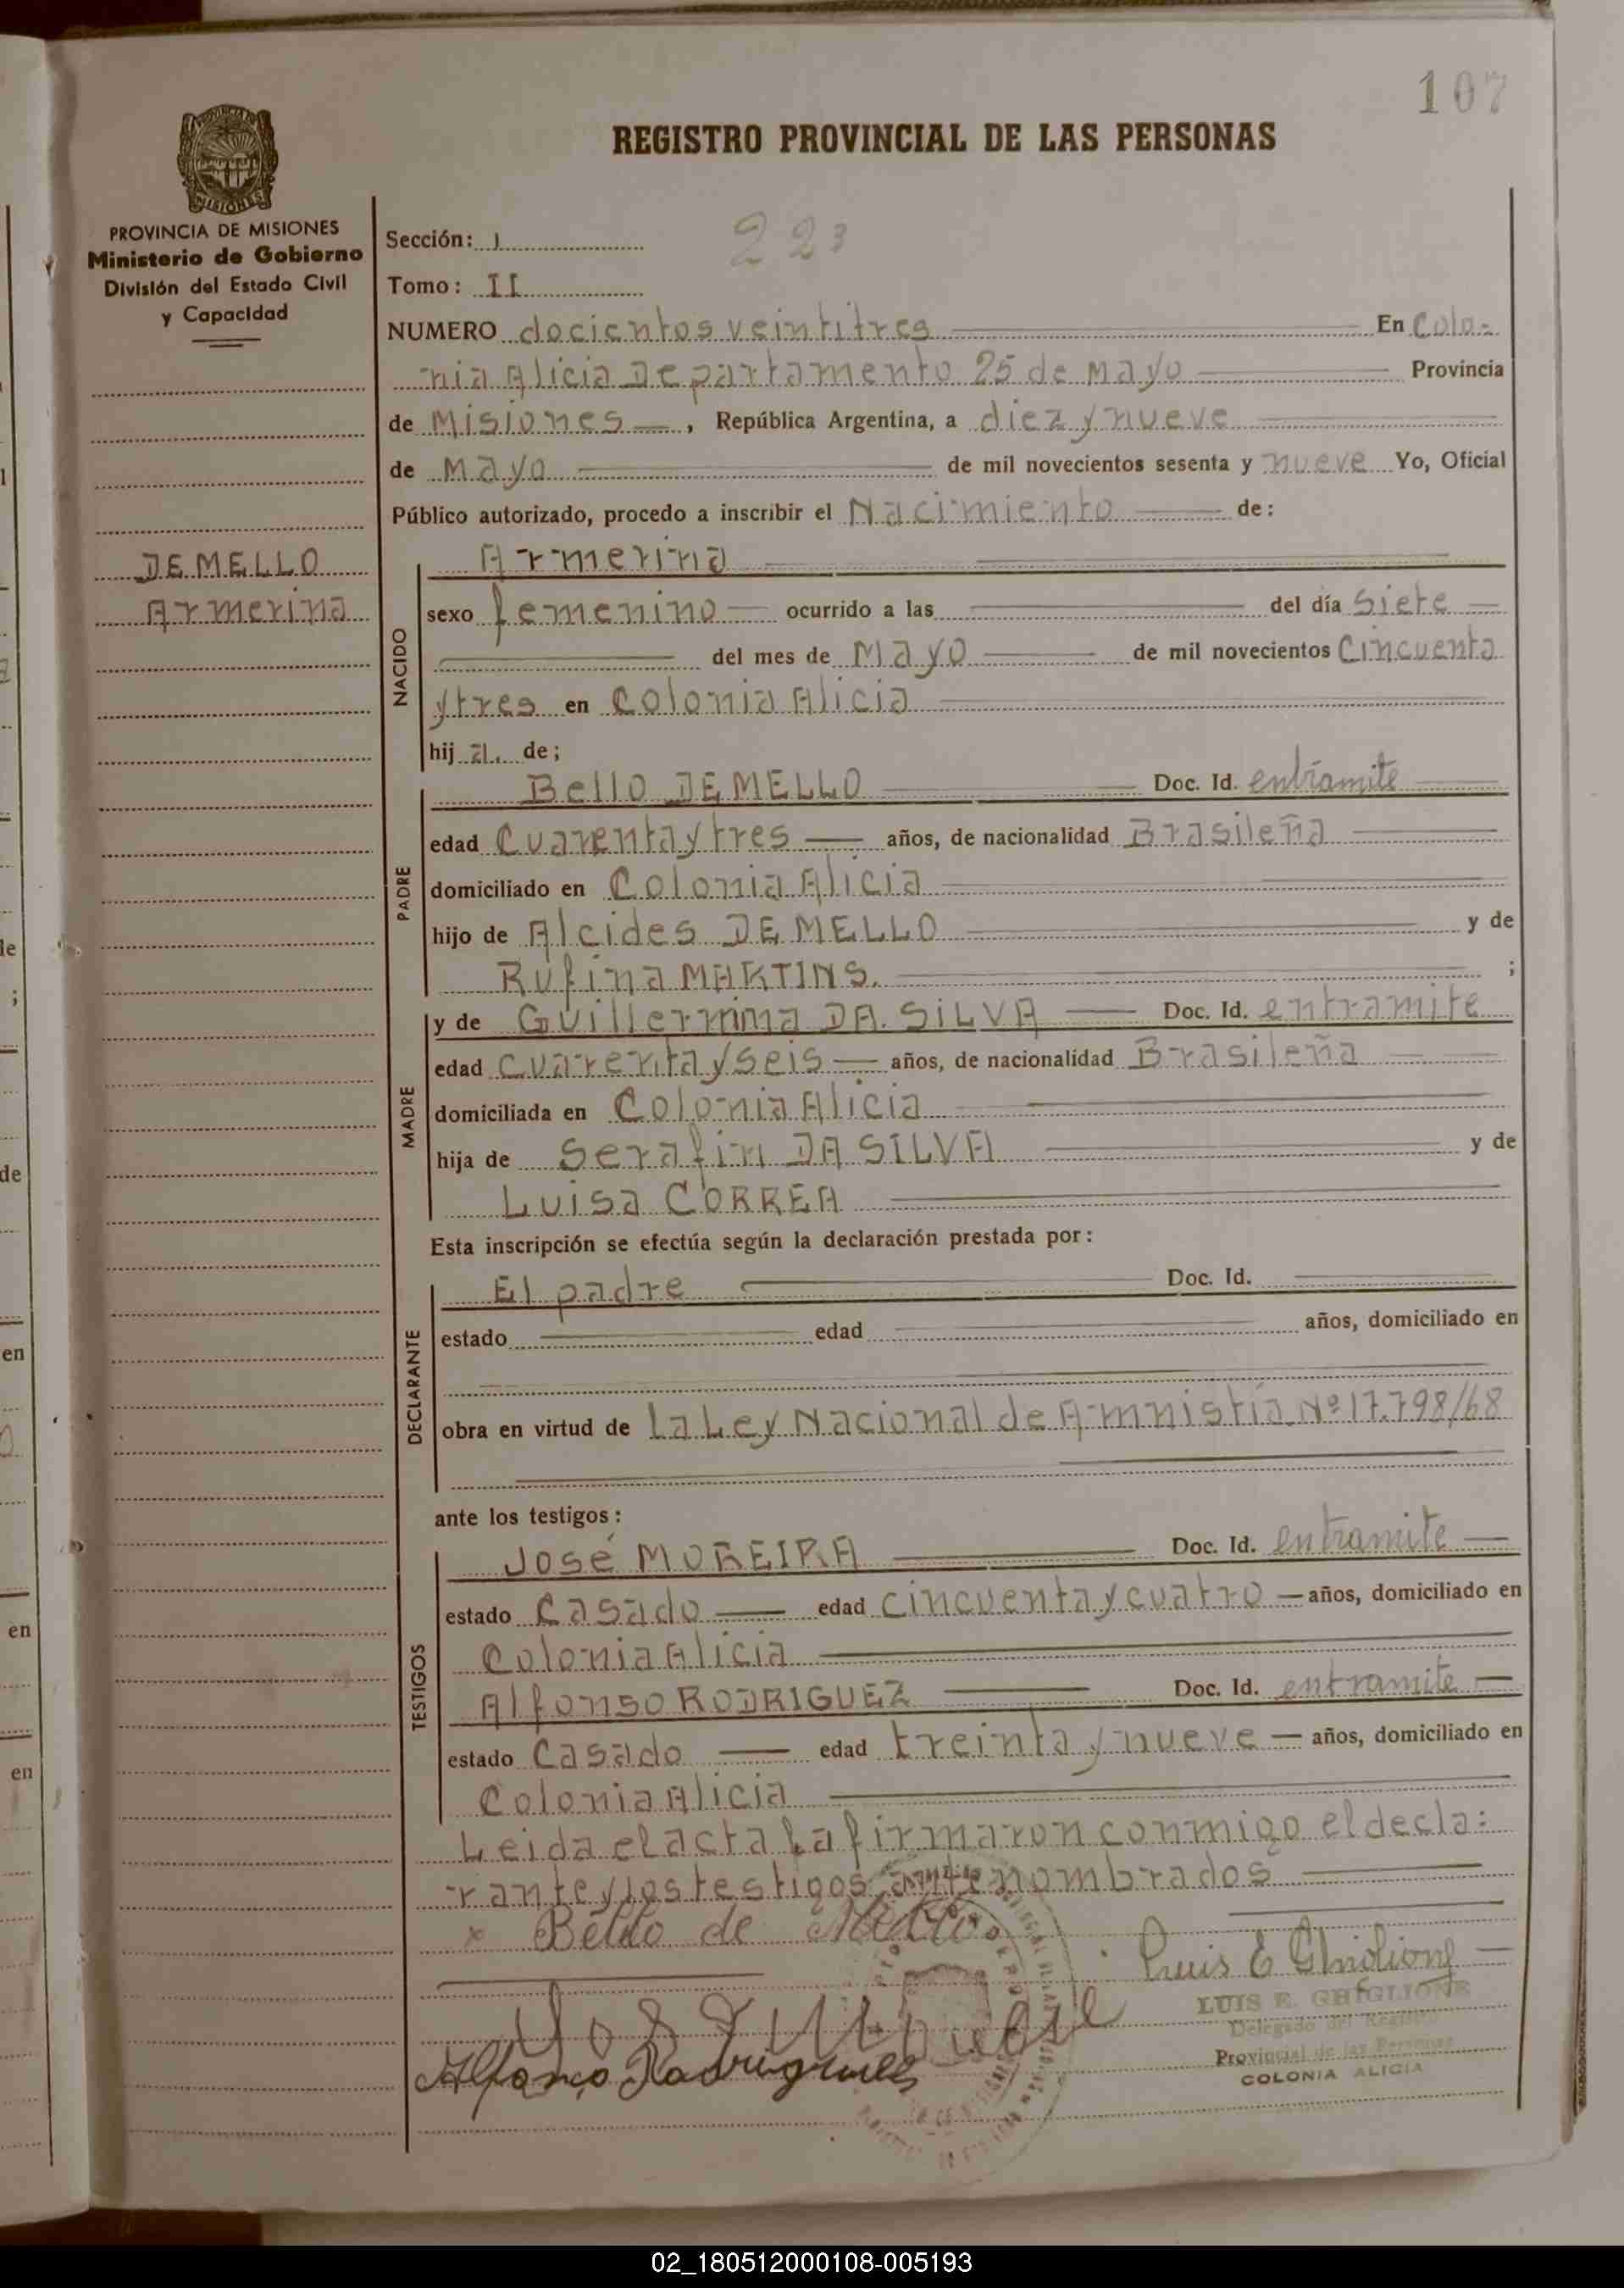 107
REGISTRO PROVINCIAL DE LAS PERSONAS
PROVINCIA DE MISIONES
Ministerio de Gobierno
División del Estado Civil
y Capacidad
DE MELLO
Armerina
223
Sección: I
Tomo: II
NUMERO docientos veintitres En Colo-
nia Alicia Departamento 25 de Mayo Provincia
de Misiones, República Argentina, a diez y nueve
de Mayo de mil novecientos sesenta y nueve Yo, Oficial
Público autorizado, procedo a inscribir el Nacimiento de:
NACIDO
Armerina
sexo femenino ocurrido a las del día Siete
del mes de Mayo de mil novecientos Cincuenta
y tres en Colonia Alicia
hija. de;
PADRE
Bello DE MELLO Doc. Id. entramite
edad Cuarenta y tres años, de nacionalidad Brasileña
domiciliado en Colonia Alicia
hijo de Alcides DE MELLO y de
Rufina MARTINS. ;
MADRE
y de Guillermina DA SILVA Doc. Id. entramite
edad Cuarenta y seis años, de nacionalidad Brasileña
domiciliada en Colonia Alicia
hija de Serafin DA SILVA y de
Luisa CORREA
Esta inscripción se efectúa según la declaración prestada por:
DECLARANTE
El padre Doc. Id.
estado edad años, domiciliado en
obra en virtud de la Ley Nacional de Amnistía Nº 17.798/68
ante los testigos:
TESTIGOS
José MOREIRA Doc. Id. entramite
estado Casado edad cincuenta y cuatro años, domiciliado en
Colonia Alicia
Alfonso RODRIGUEZ Doc. Id. entramite
estado Casado edad treinta y nueve años, domiciliado en
Colonia Alicia
Leida el acta La firmaron conmigo el decla=
rante y los testigos antenombrados
x Bello de Mello
Luis E Ghiglione
LUIS E. GHIGLIONE
Delegado del Registro
Provincial de las Personas
COLONIA ALICIA
02_180512000108-005193